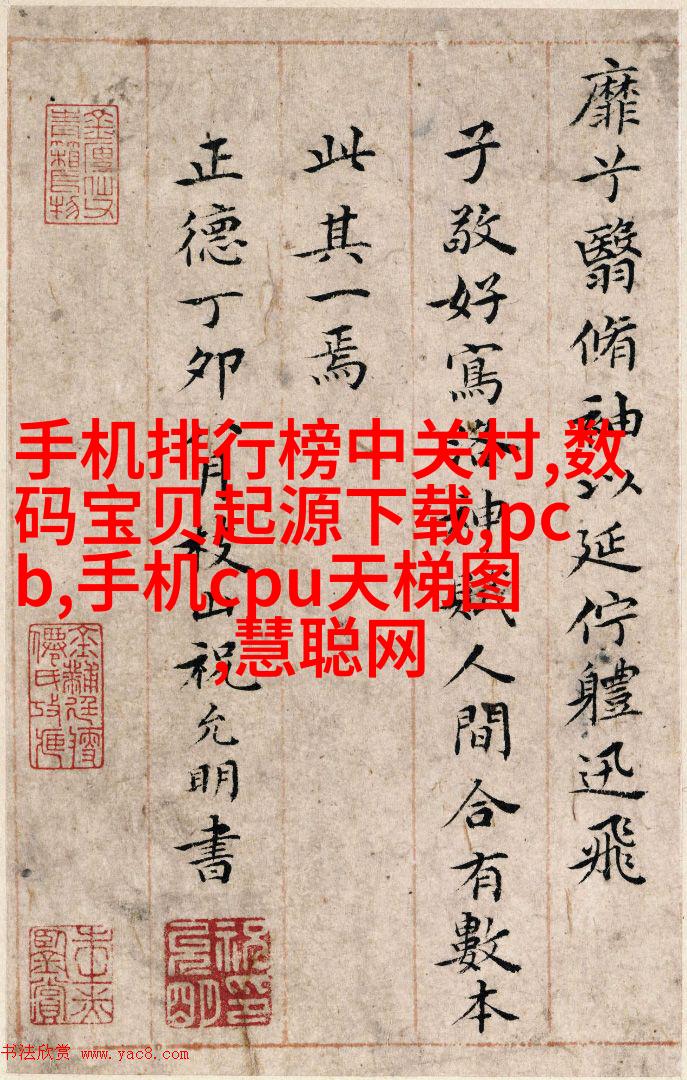 靡兮翳脩袖以延佇體迅飛
子敬好寫洛神賦人間合有數本
此其一焉
正德丁卯
祝允明書
手机排行榜中关村,数
码宝贝起源下载,pc
b,手机cpu天梯图
,慧聪网
书法欣赏 www.yac8.com